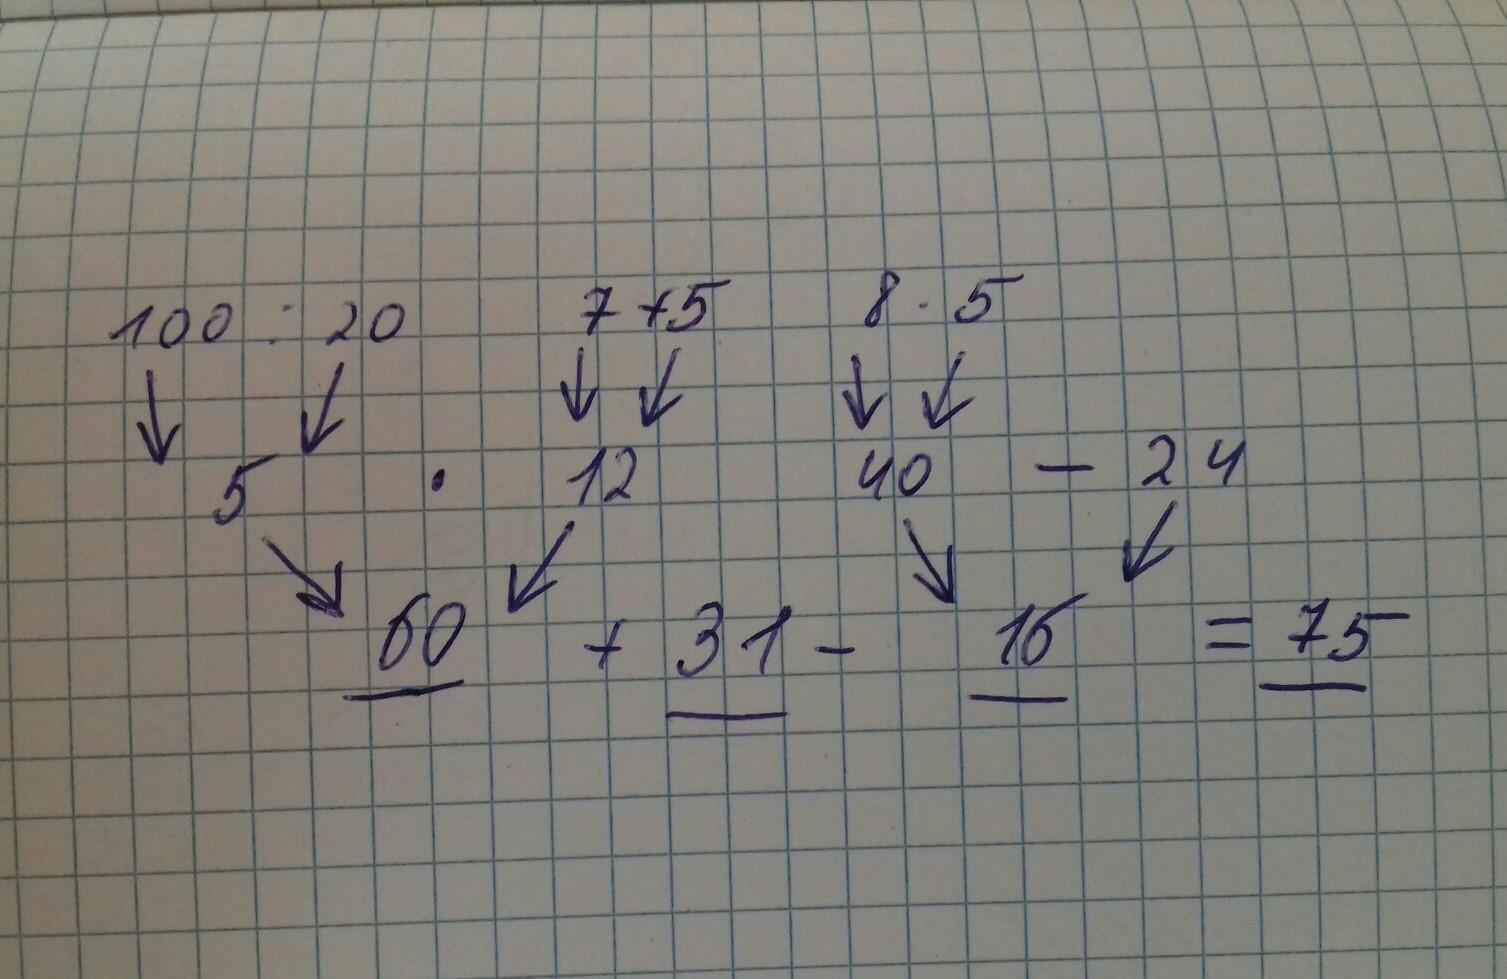 100 : 20 7 + 5 8 · 5
5 · 12 40 - 24
60 + 31 - 16 = 75